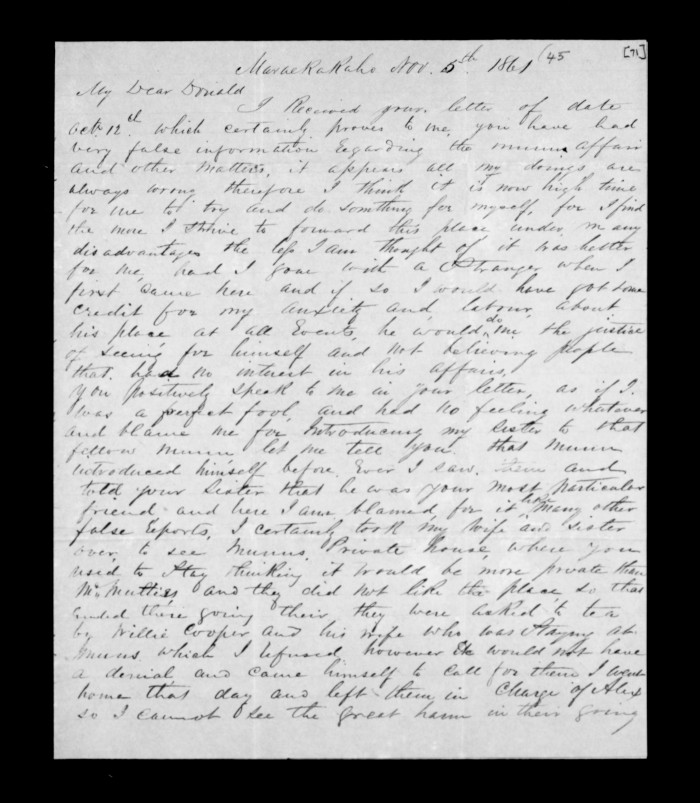 Maraekakaho Nov. 5th 1861 (45 [71]
My Dear Donald
I Received your letter of date
Octr 12th which certainly proves to me, you have had
very false information regarding the Munn affair
and other Matters, it appears all my doings are
always wrong therefore I think it is now high time
for me to try and do somthing for myself, for I find
the more I Strive to forward this place under many
disadvantages the less I am thought of it was better
for me, had I gone with a Stranger when I
first came here and if so I would have got some
credit for my anxiety and, labour, about
his place at all Events, he would do me the justice
of seeing for himself and not believing people
that had no interest in his affairs,
You positively speak to me in your letter, as if I
was a perfect fool, and had no feeling whatever
and blame me for Introducing my sister to that
fellow Munn, let me tell you that Munn
introduced himself before Ever I saw them and
told your Sister that he was your most particular
friend and here I am blamed, for it like many other
false reports, I certainly took my wife and Sister
over, to see Munns Private house, where you
used to Stay thinking it would be more private than
McMurties and they did not like the place so that
Ended there going their they were asked to tea
by Willie Cooper and his wife who was Staying at
Munns which I refused however he would not have
a denial and came himself to call for them I went
home that day and left them in Charge of Alex
so I cannot See the great harm in their going